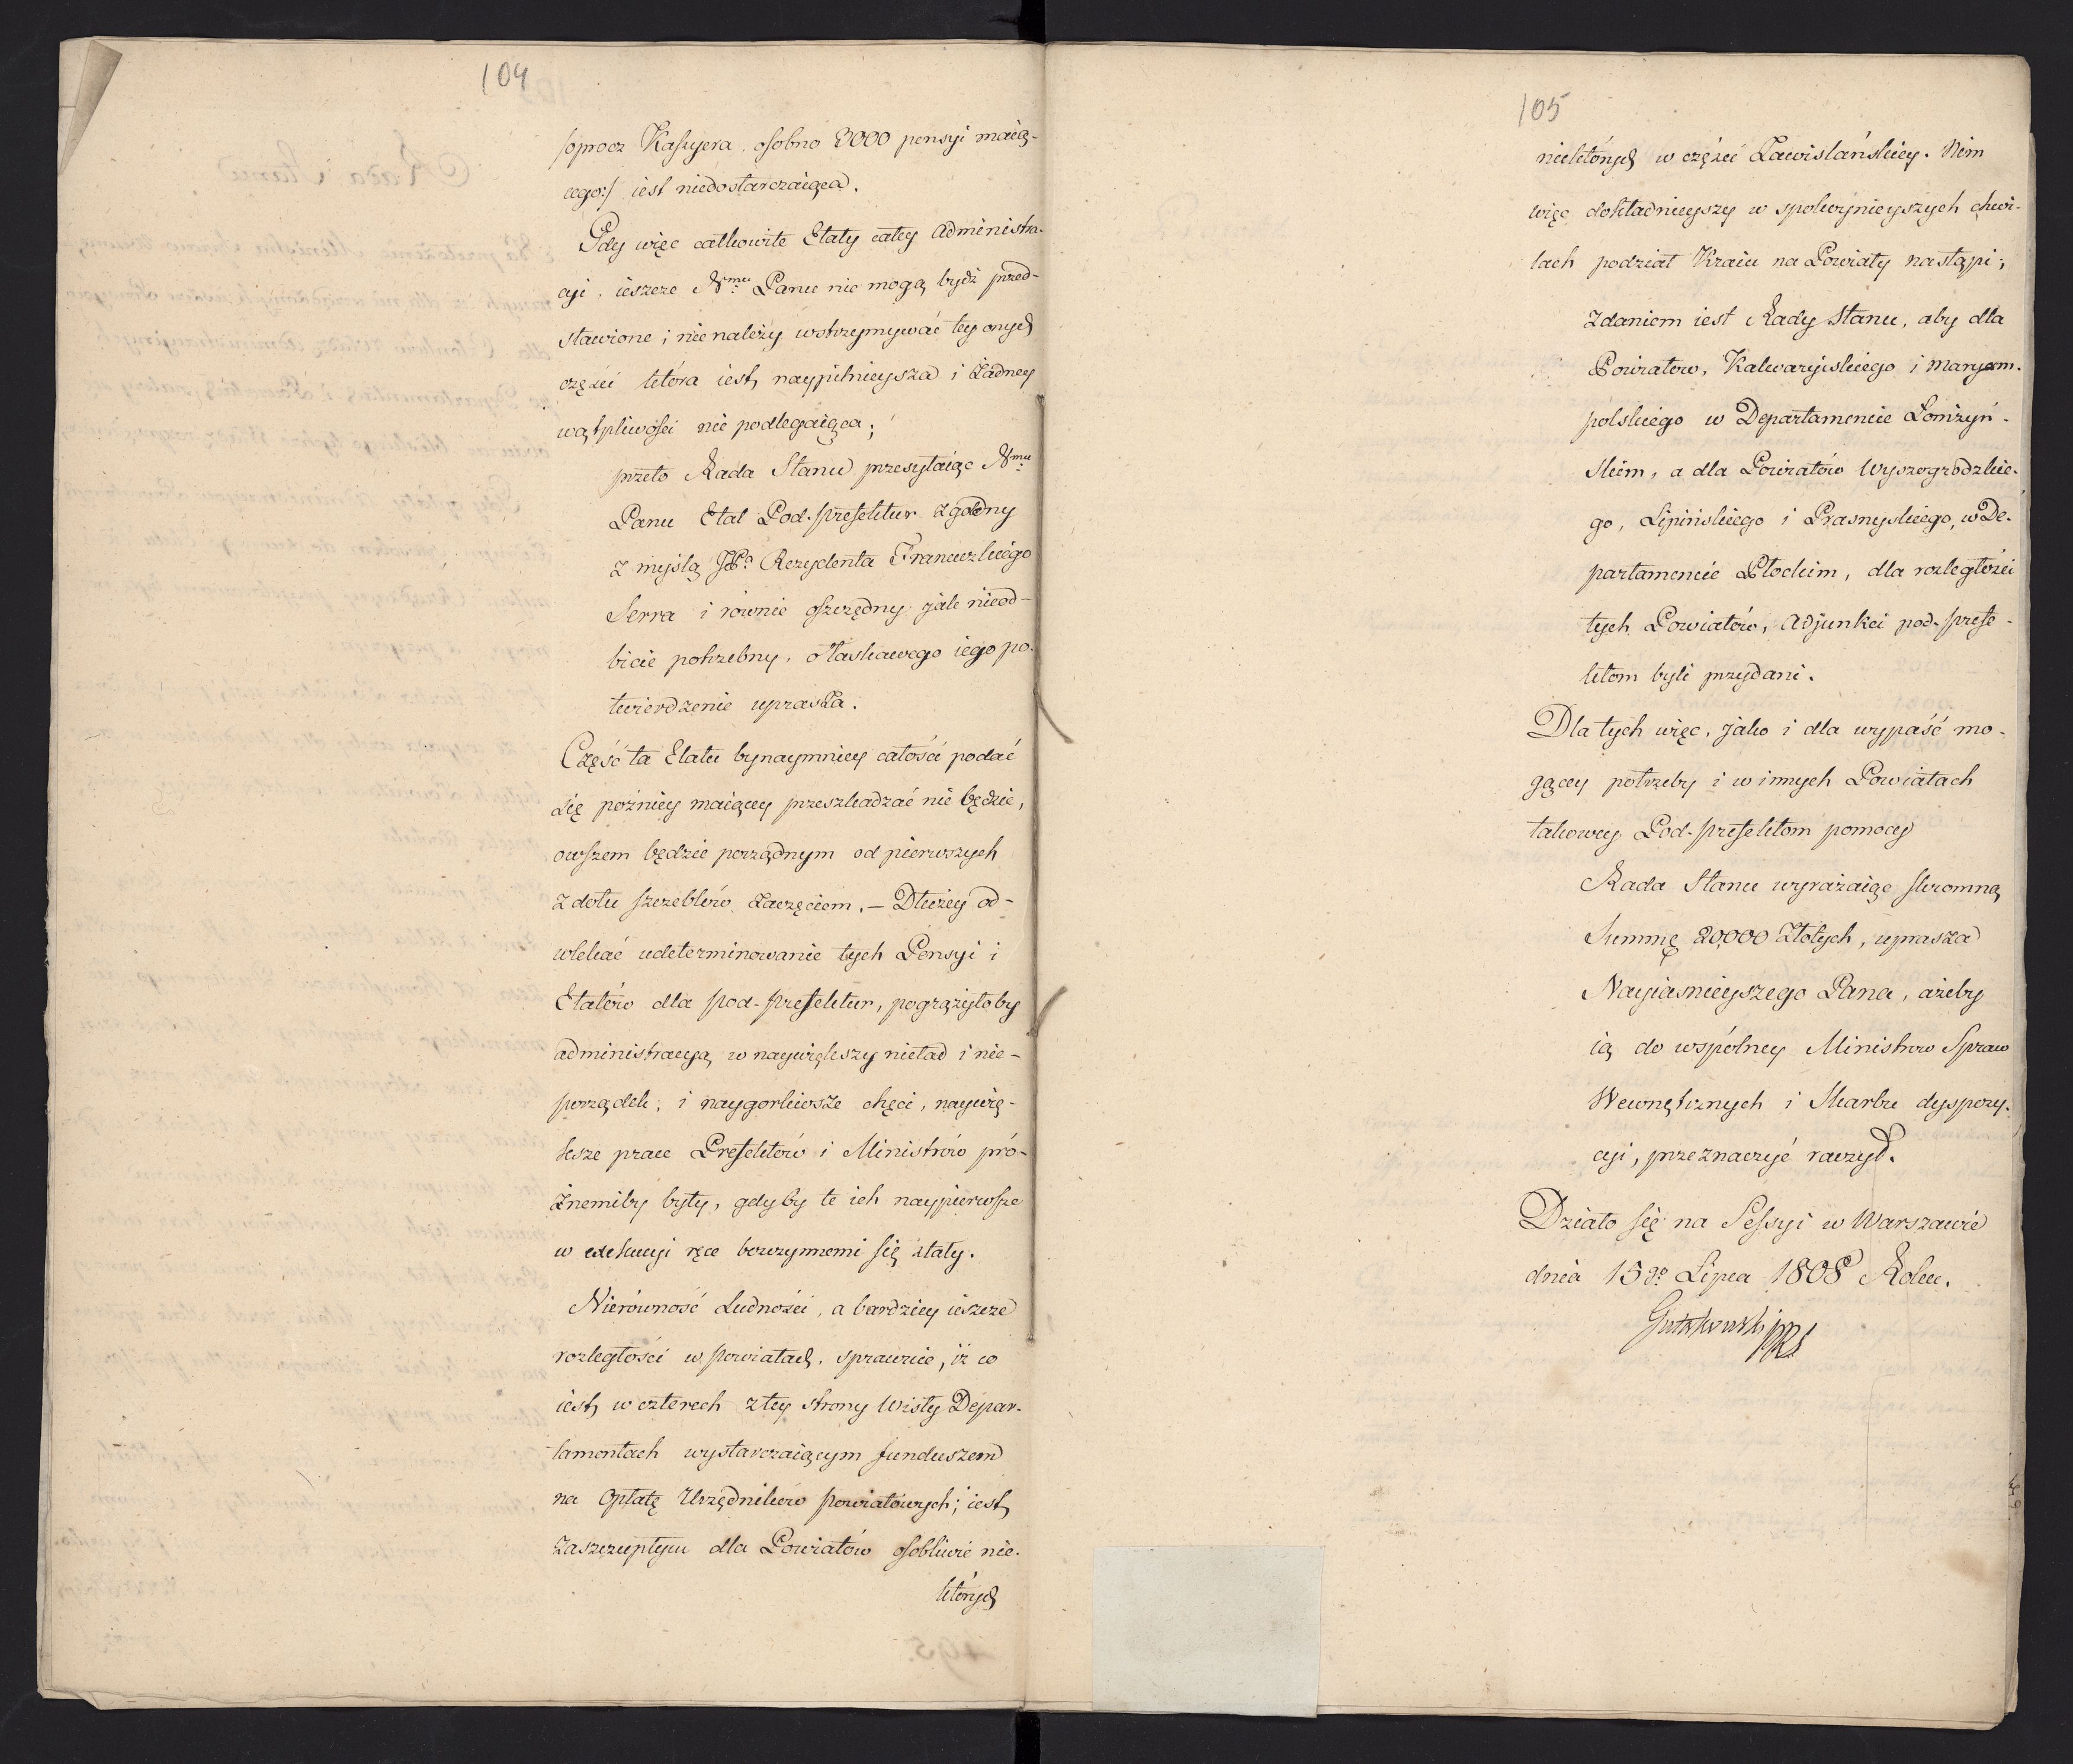 104
/oprocz Kassyera osobno 3000 pensyi maią-
cego:/ iest niedostarczaiąca.
Gdy więc całkowite Etaty całey administra-
cyi ieszcze N:mu Panu nie mogą bydź przed-
stawione; nie należy wstrzymywać tey onych
części która iest naypilnieysza i żadney
wątpliwości nie podlegaiąca;
przeto Rada Stanu przesyłaiąc N:mu
Panu Etat Pod-prefektur zgodny
z myślą JP:a Rezydenta Francuzkiego
Serra i równie oszczędny jak nieod-
bicie potrzebny, o łaskawego iego po-
twierdzenie uprasza.
Część ta Etatu bynaymniey całości podać
się poźniey maiącey przeszkadzać nie będzie,
owszem będzie porządnym od pierwszych
z dołu szczeblów zaczęciem. – Dłużey od-
wlekać udeterminowanie tych Pensyi i
Etatów dla pod-prefektur, pogrążyłoby
administracyą w naywiększy nieład i nie-
porządek; i naygorliwsze chęci, naywię-
ksze prace Prefektów i Ministrów pró-
żnemiby były, gdyby te ich naypierwsze
w exekucyi ręce bezczynnemi się stały.
Nierówność Ludności, a bardziey ieszcze
rozległości w powiatach, sprawuie, iż co
iest w czterech z tey strony Wisły Depar-
tamentach wystarczaiącym funduszem
na Opłatę Urzędników powiatowych; iest
zaszczupłym dla Powiatów osobliwie nie-
których
105
niektórych w części Zawislańskiey. Nim
więc dokładnieyszy w spokoynieyszych chwi-
lach podział Kraiu na Powiaty nastąpi;
zdaniem iest Rady Stanu, aby dla
Powiatów, Kalwaryiskiego i Maryam-
polskiego w Departamencie Łomżyń-
skim, a dla Powiatów Wyszogrodzkie-
go, Lipińskiego i Prasnyskiego, w De-
partamencie Płockim, dla rozległości
tych Powiatów, Adjunkci pod-prefe-
ktom byli przydani.
Dla tych więc, jako i dla wypaść mo-
gącey potrzeby i w innych Powiatach
takowey Pod-prefektom pomocy
Rada Stanu wyrażaiąc skromną
Summę 20,000 Złotych, uprasza
Nayiasnieyszego Pana, ażeby
ią do wspólney Ministrow Spraw
Wewnętrznych i Skarbu dyspozy-
cyi, przeznaczyć raczył.
Działo się na Sessyi w Warszawie
dnia 15go Lipca 1808 Roku.
Gutakowski PRS